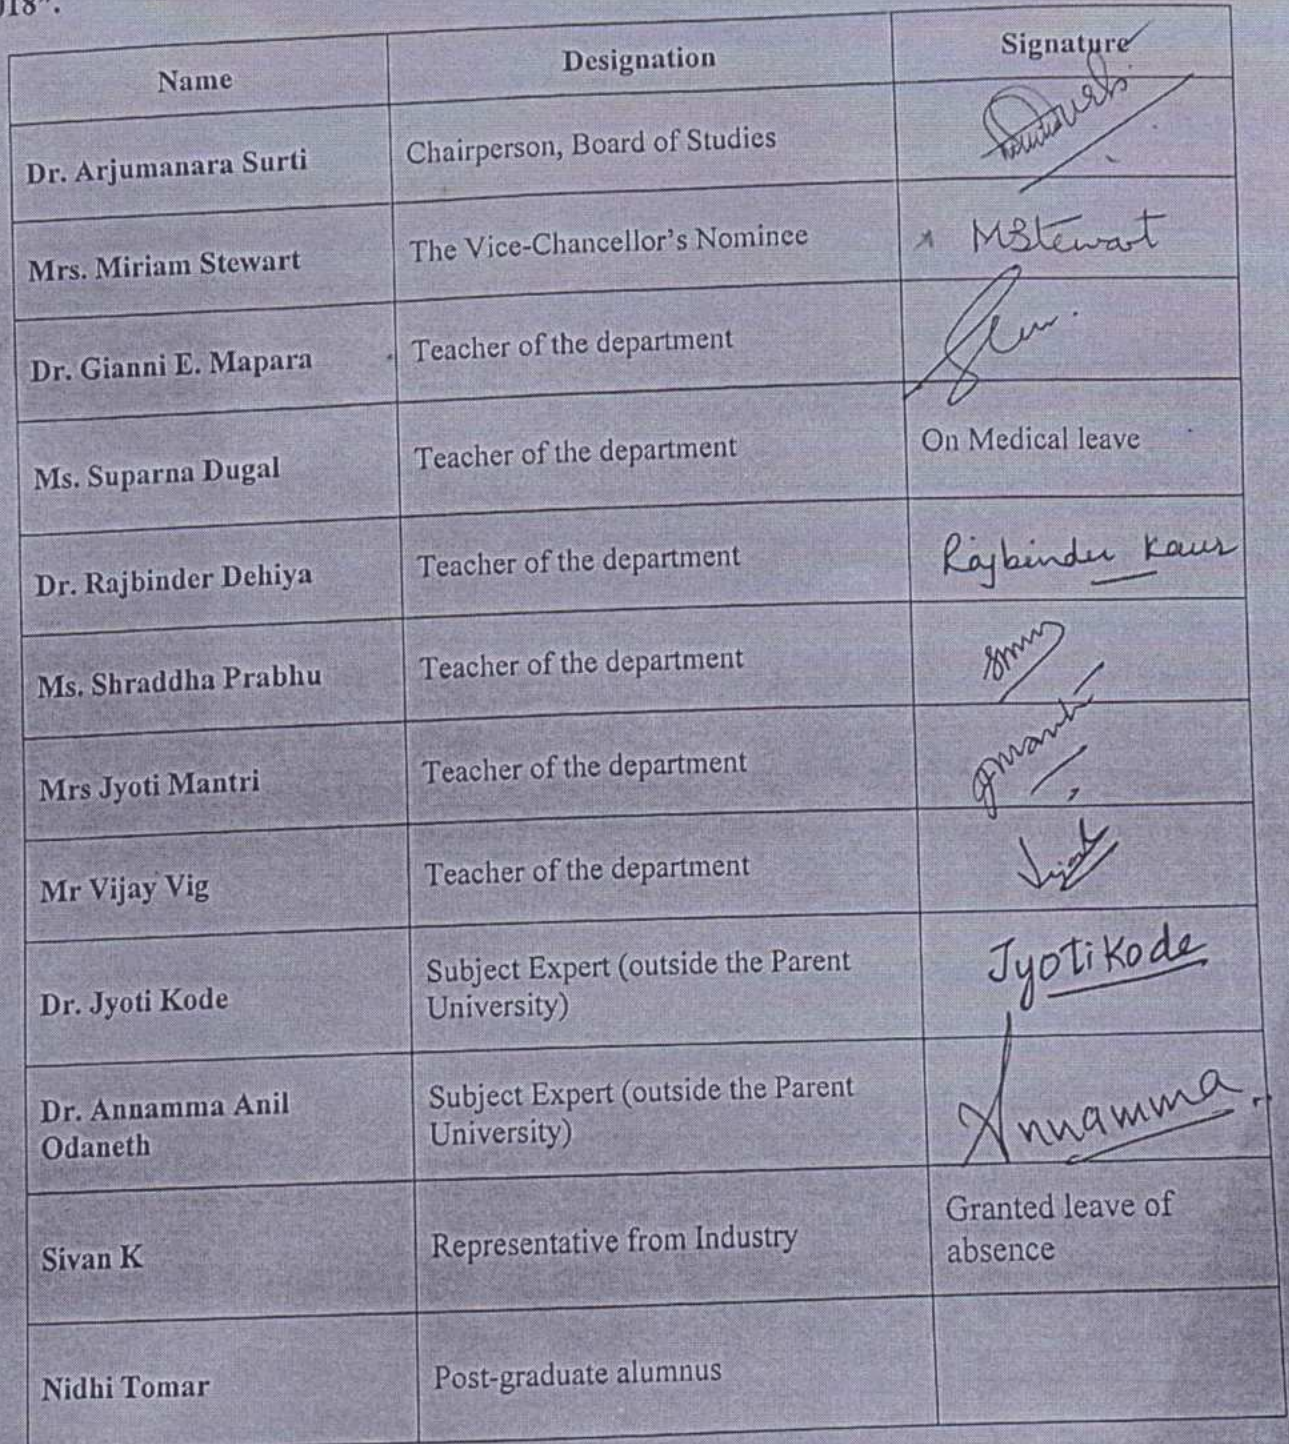 018".
Name Designation Signature
Dr. Arjumanara Surti Chairperson, Board of Studies
Mrs. Miriam Stewart The Vice-Chancellor's Nominee MStewart
Dr. Gianni E. Mapara Teacher of the department
Ms. Suparna Dugal Teacher of the department On Medical leave
Dr. Rajbinder Dehiya Teacher of the department Rajbinder Kaur
Ms. Shraddha Prabhu Teacher of the department
Mrs Jyoti Mantri Teacher of the department
Mr Vijay Vig Teacher of the department
Dr. Jyoti Kode Subject Expert (outside the Parent
University) Jyoti Kode
Dr. Annamma Anil
Odaneth Subject Expert (outside the Parent
University) Annamma
Sivan K Representative from Industry Granted leave of
absence
Nidhi Tomar Post-graduate alumnus